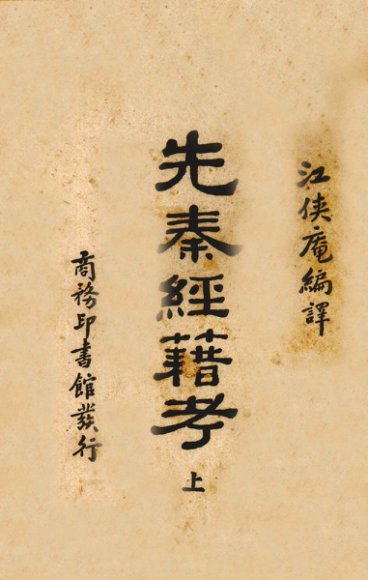 江俠庵編譯
先秦經籍考
上
商務印書館發行